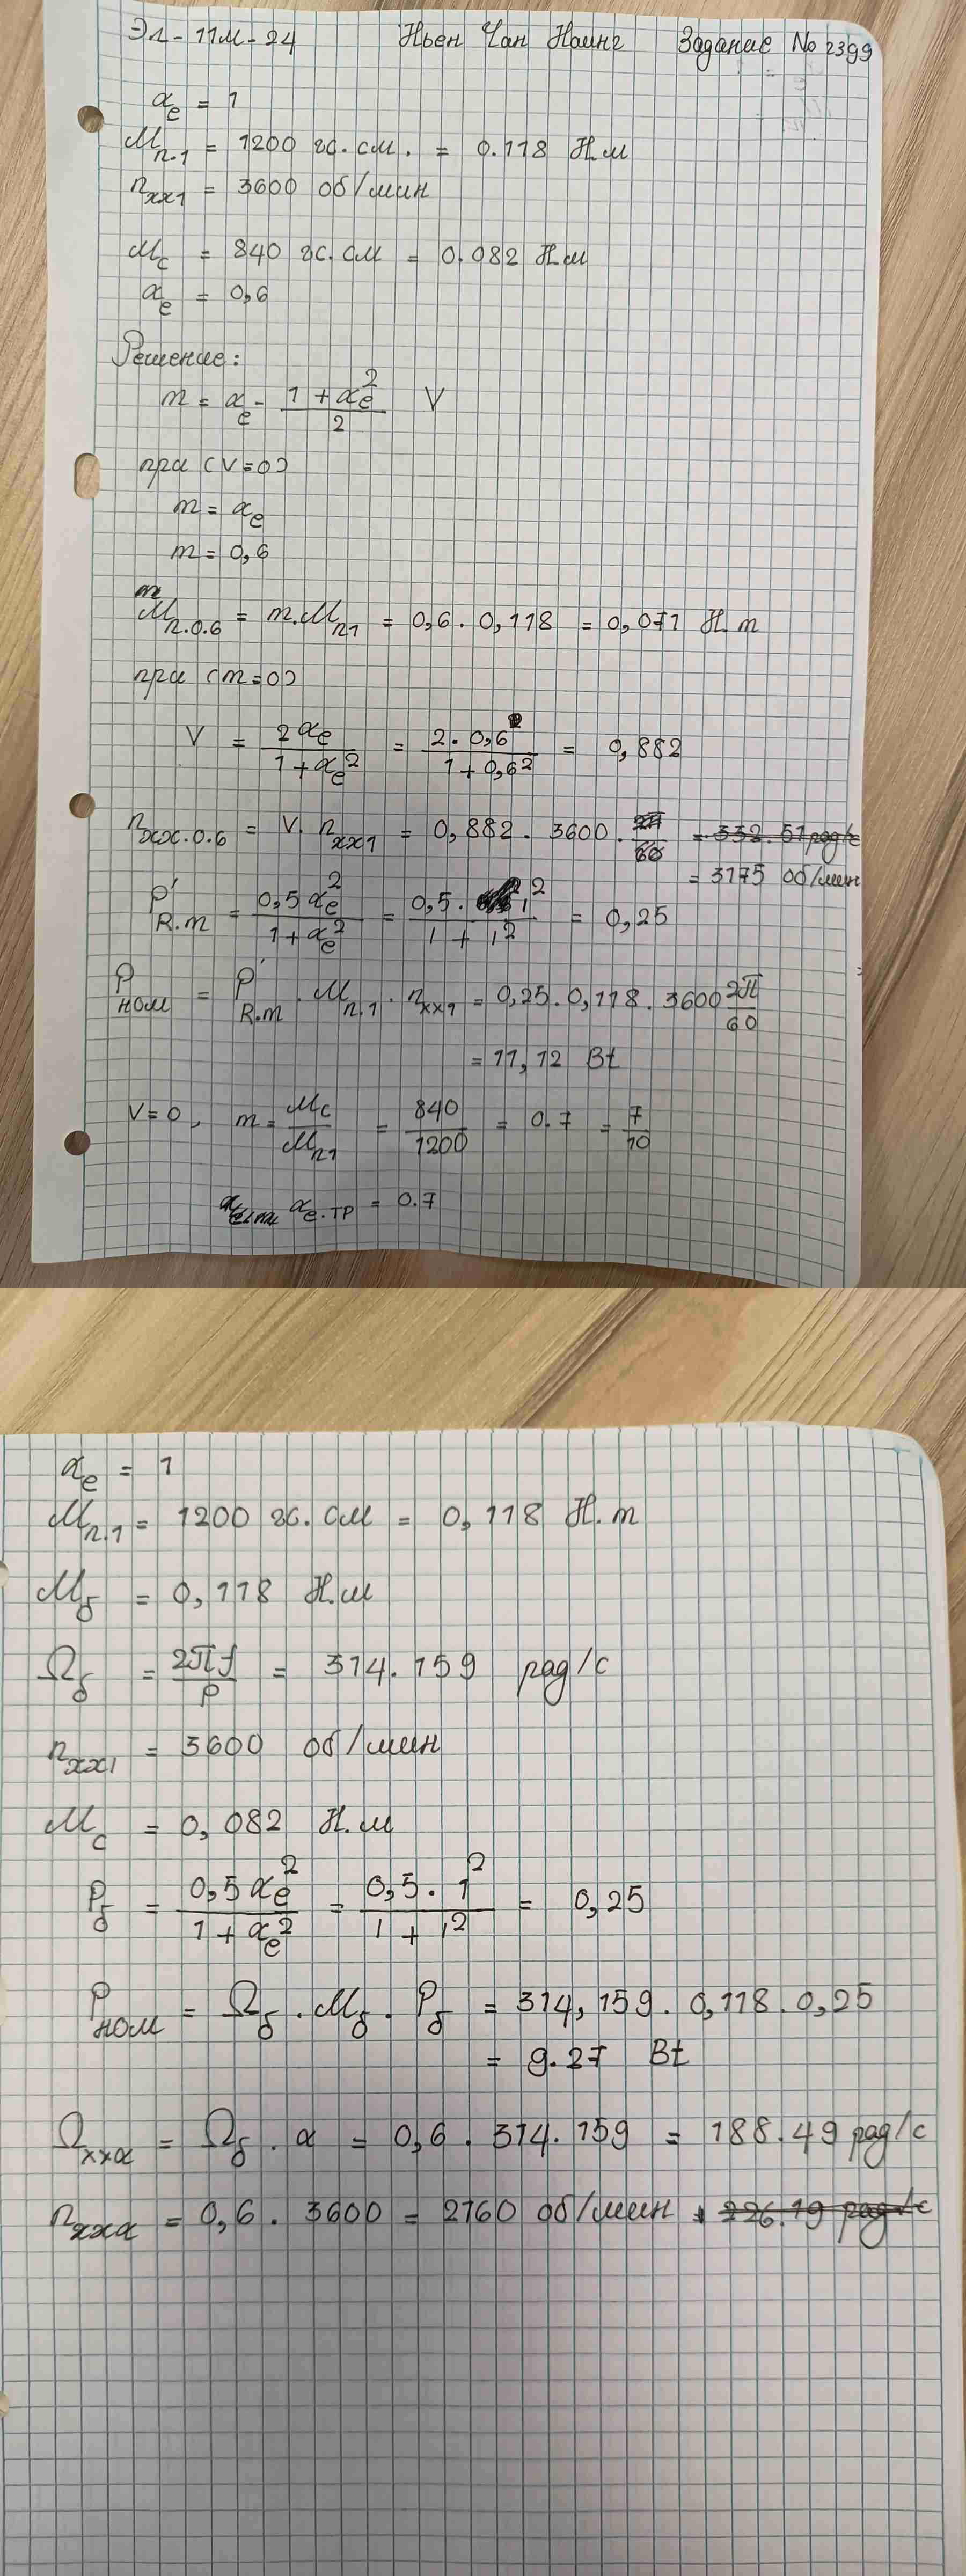 Эл-11М-24 Ньен Чан Наинг Задание № 2399
αe = 1
Mп.1 = 1200 гс.см. = 0.118 Н.м
nxx1 = 3600 об/мин
Mc = 840 гс.см = 0.082 Н.м
αe = 0,6
Решение:
m = αe - (1 + αe²)/2 V
при (V=0)
m = αe
m = 0,6
Mп.0.6 = m.Mп1 = 0,6 . 0,118 = 0,071 Н.m
при (m=0)
V = 2αe/(1+αe²) = 2.0,6/(1+0,6²) = 0,882
nxx.0.6 = V. nxx1 = 0,882 . 3600 . 2π/60 = 332.51 рад/с
= 3175 об/мин
P'R.m = 0,5αe²/(1+αe²) = 0,5.1²/(1+1²) = 0,25
Pном = P'R.m . Mп.1 . nxx1 = 0,25.0,118.3600 2π/60
= 11,12 Bt
V=0, m = Mc/Mп1 = 840/1200 = 0.7 = 7/10
αe.тр = 0.7
αe = 1
Mп.1 = 1200 гс.см = 0,118 Н.m
Mб = 0,118 Н.м
Ωб = 2πf/p = 314.159 рад/с
nxx1 = 3600 об/мин
Mc = 0,082 Н.м
Pб = 0,5αe²/(1+αe²) = 0,5.1²/(1+1²) = 0,25
Pном = Ωб . Mб . Pб = 314,159 . 0,118 . 0,25
= 9.27 Bt
Ωxxα = Ωб . α = 0,6 . 314.159 = 188.49 рад/с
nxxα = 0,6 . 3600 = 2160 об/мин 226.19 рад/с